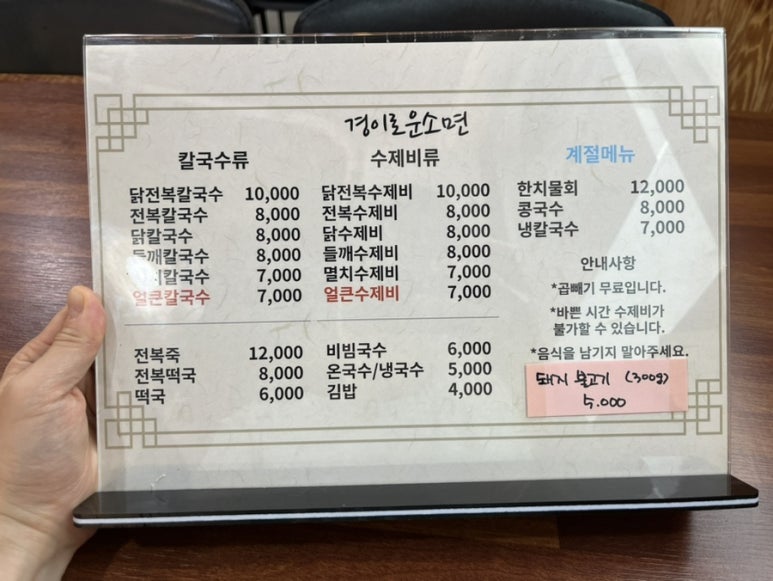 경이로운소면
칼국수류
닭전복칼국수 10,000
전복칼국수 8,000
닭칼국수 8,000
들깨칼국수 8,000
칼국수 7,000
얼큰칼국수 7,000
수제비류
닭전복수제비 10,000
전복수제비 8,000
닭수제비 8,000
들깨수제비 8,000
멸치수제비 7,000
얼큰수제비 7,000
계절메뉴
한치물회 12,000
콩국수 8,000
냉칼국수 7,000
안내사항
*곱빼기 무료입니다.
*바쁜 시간 수제비가
불가할 수 있습니다.
*음식을 남기지 말아주세요.
전복죽 12,000
전복떡국 8,000
떡국 6,000
비빔국수 6,000
온국수/냉국수 5,000
김밥 4,000
돼지 불고기 (300g)
5.000